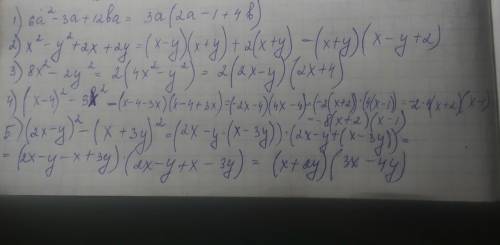 1) 6a² - 3a + 12ba = 3a(2a - 1 + 4b)
2) x² - y² + 2x + 2y = (x - y)(x + y) + 2(x + y) - (x + y)(x - y + 2)
3) 8x² - 2y² = 2(4x² - y²) = 2(2x - y)(2x + 4)
4) (x - 4)² - 9x² - (x - 4 - 3x)(x - 4 + 3x) = (-2x - 4)(4x - 4) - (-2(x + 2))·(4(x - 1)) = -2·4(x + 2)(x - 1)
= -8(x + 2)(x - 1)
5) (2x - y)² - (x + 3y)² = (2x - y · (x - 3y))·(2x - y + (x - 3y)) =
= (2x - y - x + 3y)·(2x - y + x - 3y) = (x + 2y)(3x - 4y)